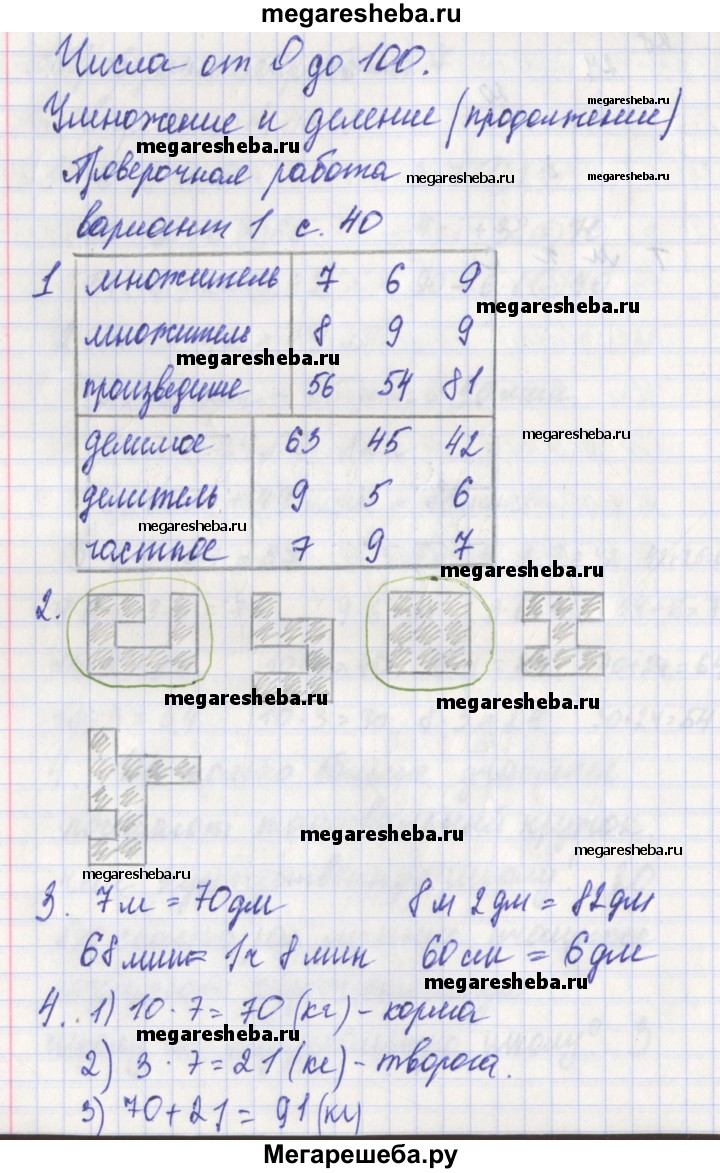 megaresheba.ru
Числа от 0 до 100.
Умножение и деление (продолжение)
megaresheba.ru
megaresheba.ru
Проверочная работа
megaresheba.ru
megaresheba.ru
вариант 1 с. 40
1 множитель 7 6 9
megaresheba.ru
множитель 8 9 9
megaresheba.ru
произведение 56 54 81
делимое 63 45 42
megaresheba.ru
делитель 9 5 6
megaresheba.ru
частное 7 9 7
megaresheba.ru
2.
megaresheba.ru
megaresheba.ru
megaresheba.ru
megaresheba.ru
megaresheba.ru
3. 7м = 70дм 8м 2дм = 82дм
68мин = 1ч 8мин 60см = 6дм
megaresheba.ru
4. 1) 10 · 7 = 70 (кг) - корма
megaresheba.ru
2) 3 · 7 = 21 (кг) - творога.
megaresheba.ru
3) 70 + 21 = 91 (кг)
Мегарешеба.ру